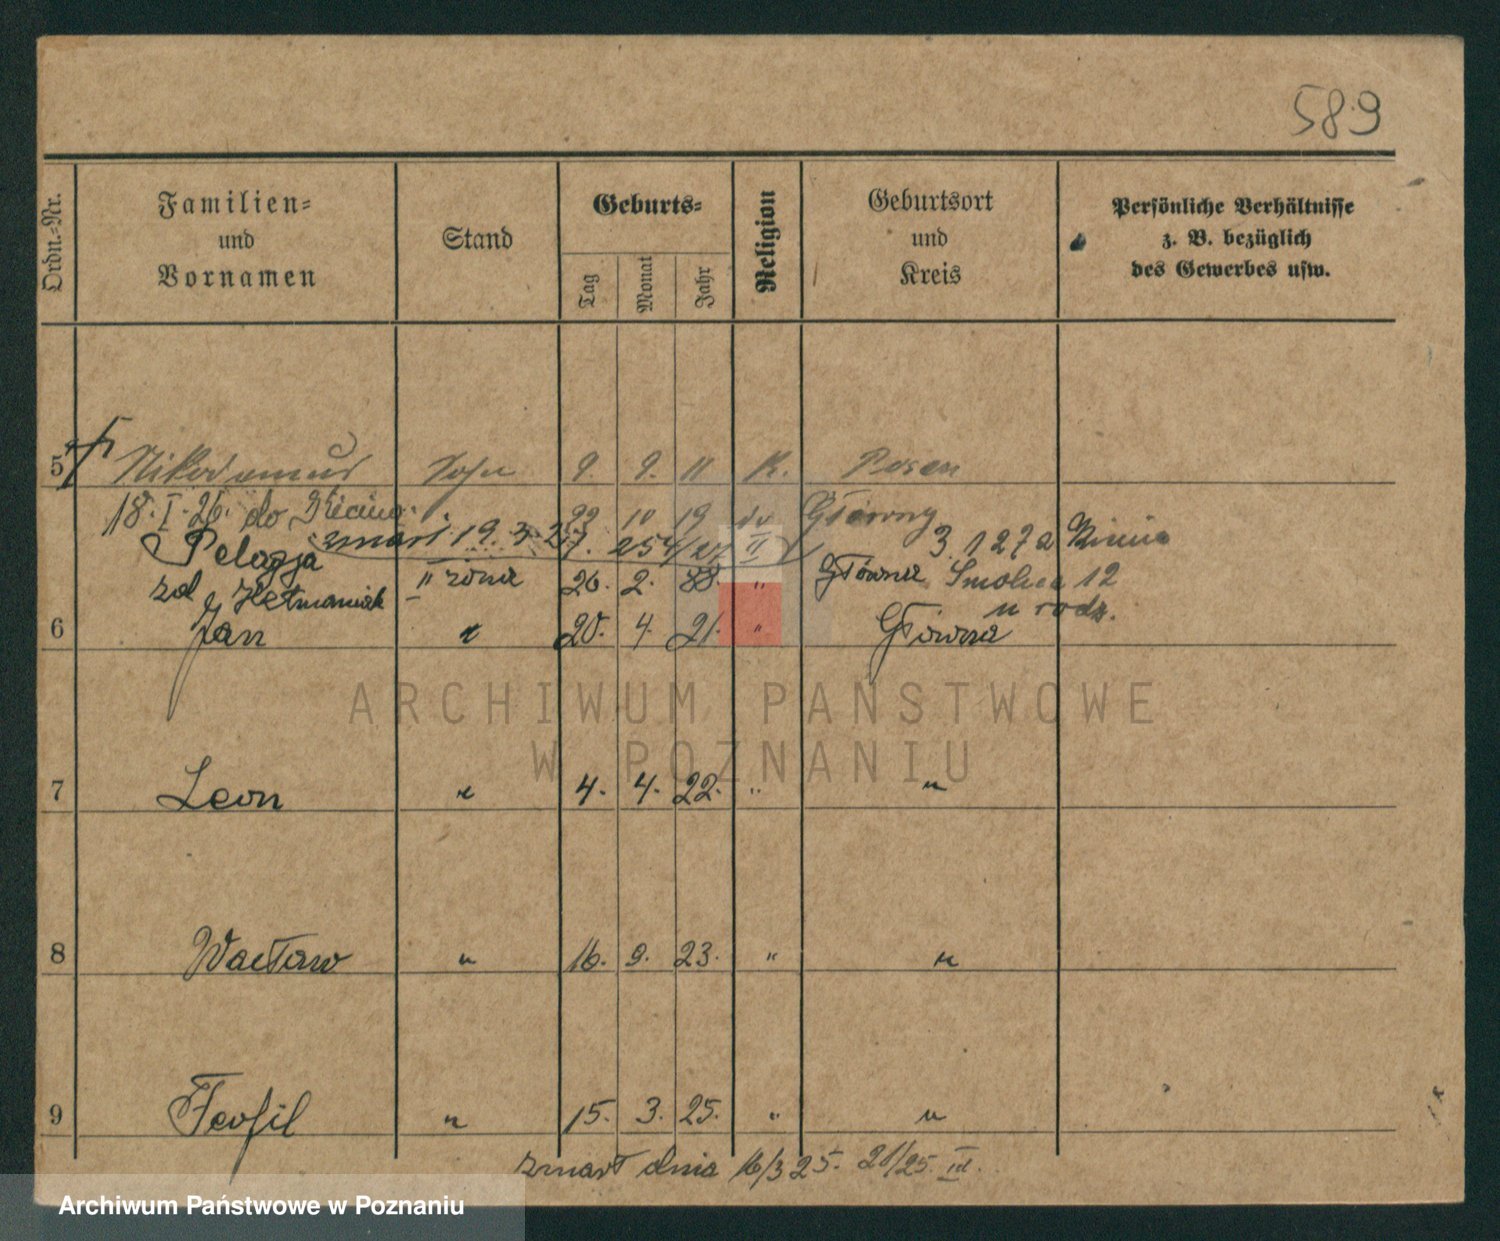 589
Ordn.-Nr.
Familien-
und
Vornamen
Stand
Geburts-
Tag
Monat
Jahr
Religion
Geburtsort
und
Kreis
Persönliche Verhältnisse
z. B. bezüglich
des Gewerbes usw.
5 Nikodemus Sohn 9. 9. 11 K. Posen
18. I. 26. do 22 10 19
zmarł 19. 3.
Pelagja II żona 26. 2. 88. " Główna Smolna 12
zd Hetmaniak u rodz.
6 Jan " 20. 4. 21. " Główna
7 Leon " 4. 4. 22. " "
8 Wacław " 16. 9. 23. " "
9 Teofil " 15. 3. 25. " "
zmarł dnia 16/3 25. 21/25. III.
ARCHIWUM PAŃSTWOWE
W POZNANIU
Archiwum Państwowe w Poznaniu